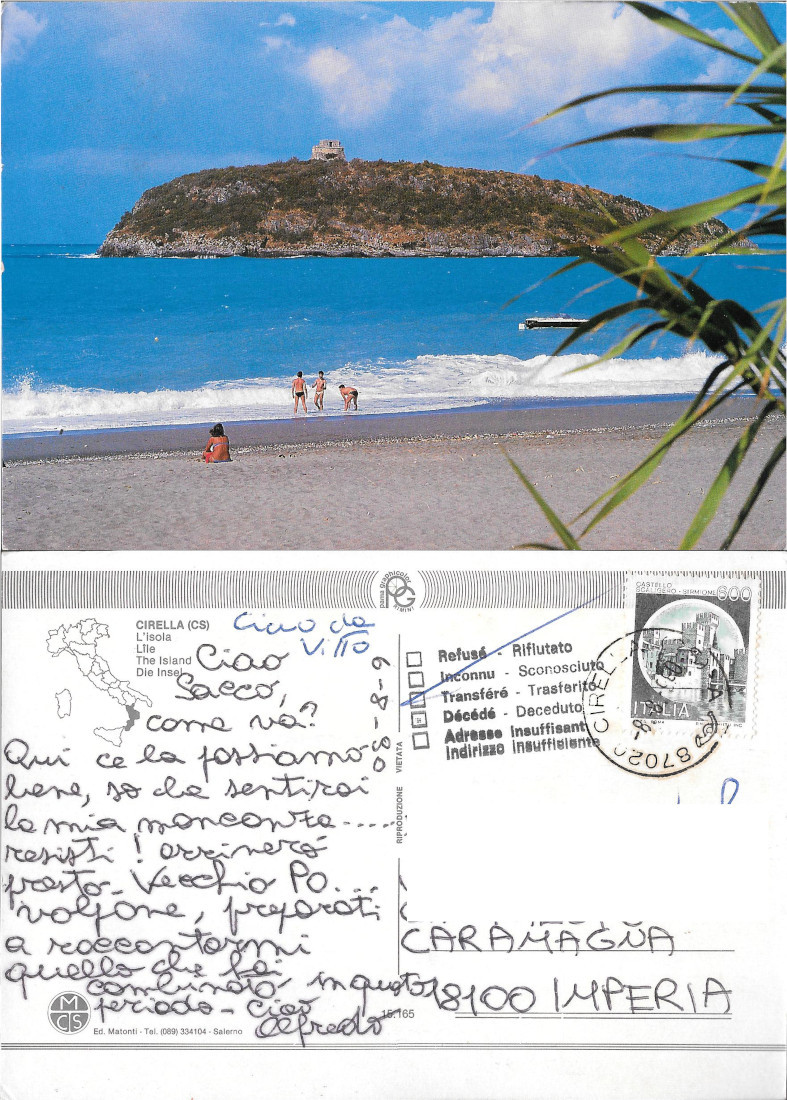 parma graphicolor
PG
RIMINI
CIRELLA (CS)
L'isola
L'île
The Island
Die Insel
Ciao da
Vitto
Ciao
Sacco,
come va?
Qui ce la passiamo
bene, so che sentirai
la mia mancanza.....
resisti! arriverò
presto. Vecchio Po....
volpone, preparati
a raccontarmi
quello che hai
combinato in questo
periodo. Ciao
Alfredo
6-8-90
RIPRODUZIONE VIETATA
Refusé - Rifiutato
Inconnu - Sconosciuto
Transféré - Trasferito
Décédé - Deceduto
Adresse Insuffisant
Indirizzo Insufficiente
CASTELLO
SCALIGERO - SIRMIONE
600
ITALIA
87020 CIRELLA
CARAMAGNA
18100 IMPERIA
MCS
Ed. Matonti - Tel. (089) 334104 - Salerno
15.165